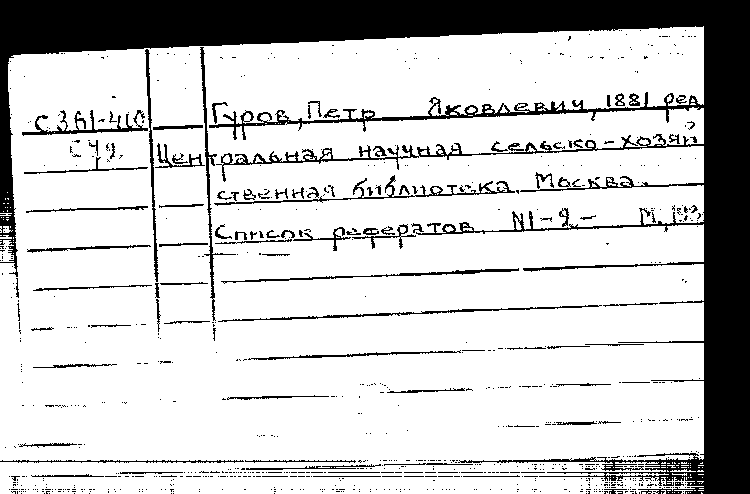 С3А1-410 Гуров, Петр Яковлевич, 1881 ред
С79. Центральная научная сельско-хозяй
ственная библиотека. Москва.
Список рефератов. N1-2- М.,193